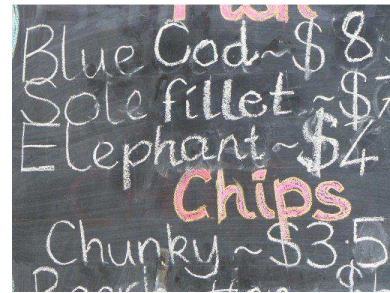 Fish
Blue Cod ~ $8
Sole fillet ~ $7
Elephant ~ $4
Chips
Chunky ~ $3.5